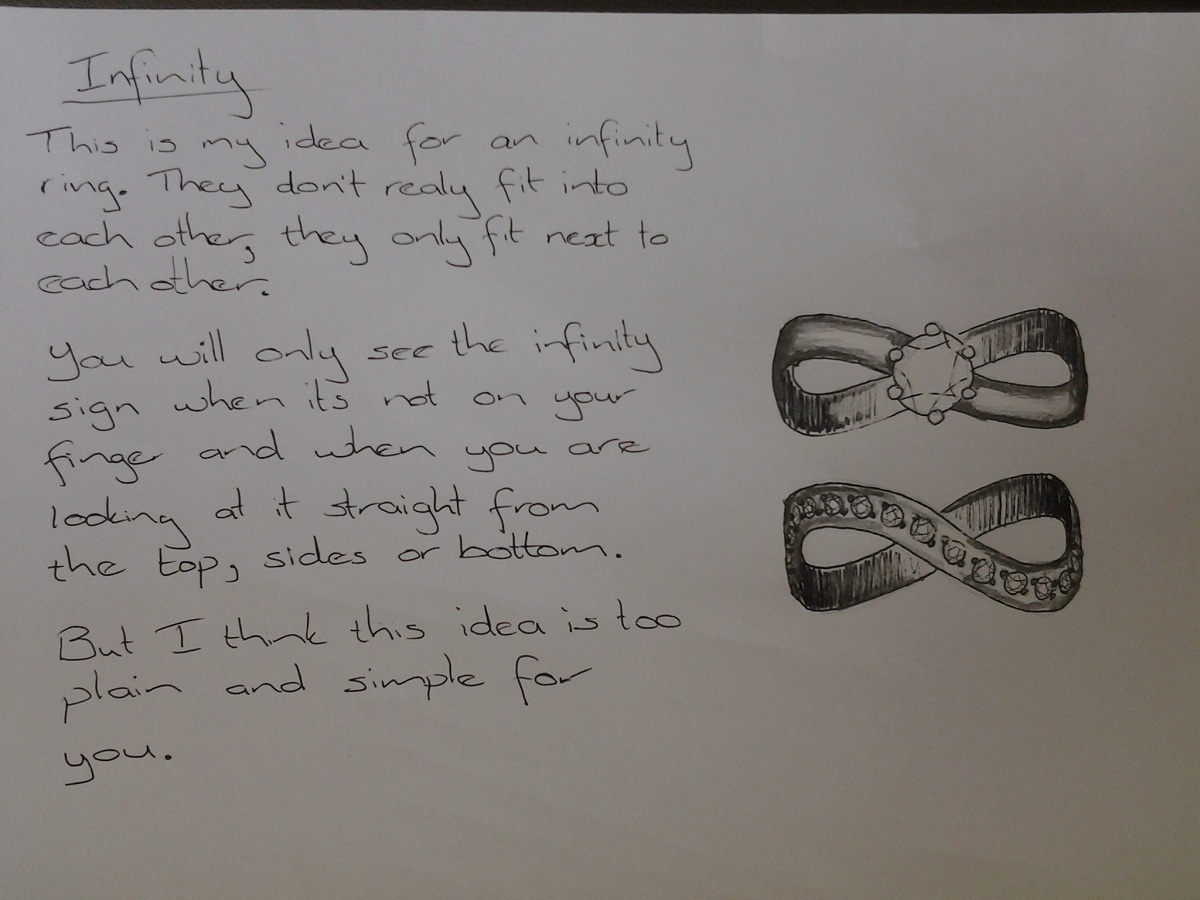 Infinity
This is my idea for an infinity
ring. They don't realy fit into
each other, they only fit next to
each other.
You will only see the infinity
sign when its not on your
finger and when you are
looking at it straight from
the top, sides or bottom.
But I think this idea is too
plain and simple for
you.